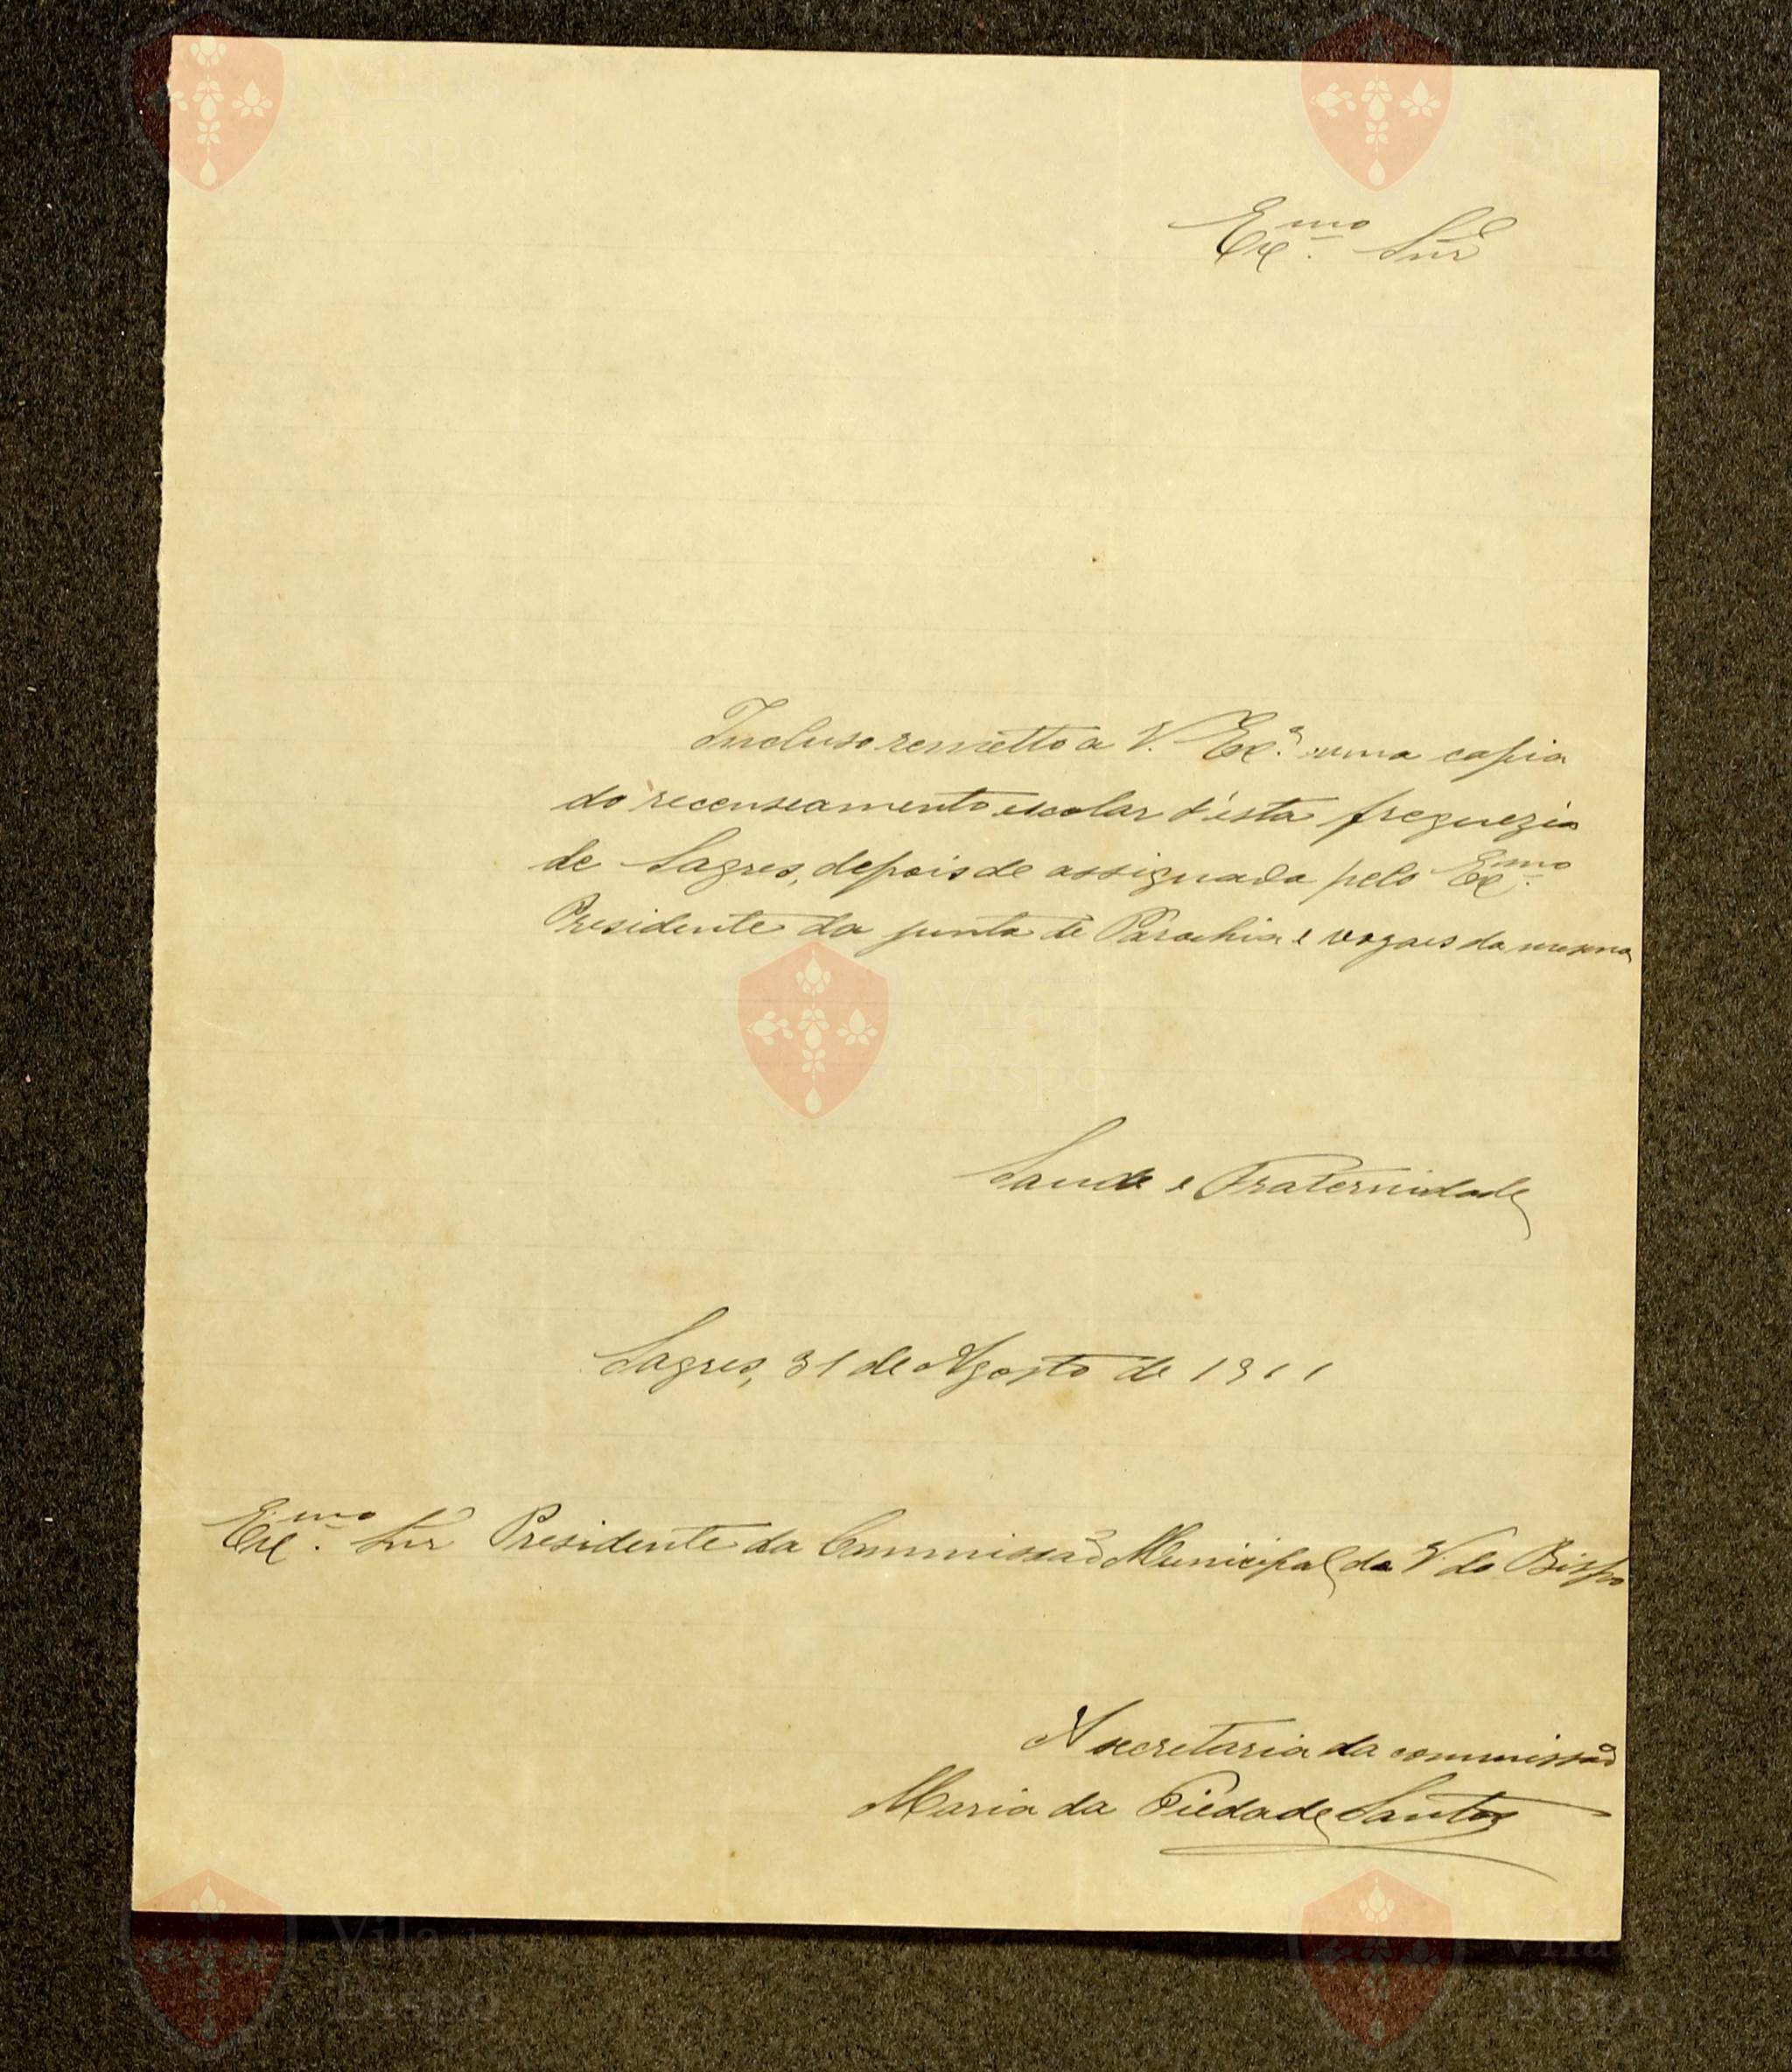 Ex.mo Snr
Incluso remetto a V. Ex.ª uma copia
do recenseamento escolar d'esta freguezia
de Sagres, depois de assignada pelo Ex.mo
Presidente da junta de Parochia e vogaes da mesma
Saude e Fraternidade
Sagres, 31 de Agosto de 1911
Ex.mo Snr Presidente da Commissão Municipal da V. do Bispo
A secretaria da commissão
Maria da Piedade Santos
Vila do
Bispo